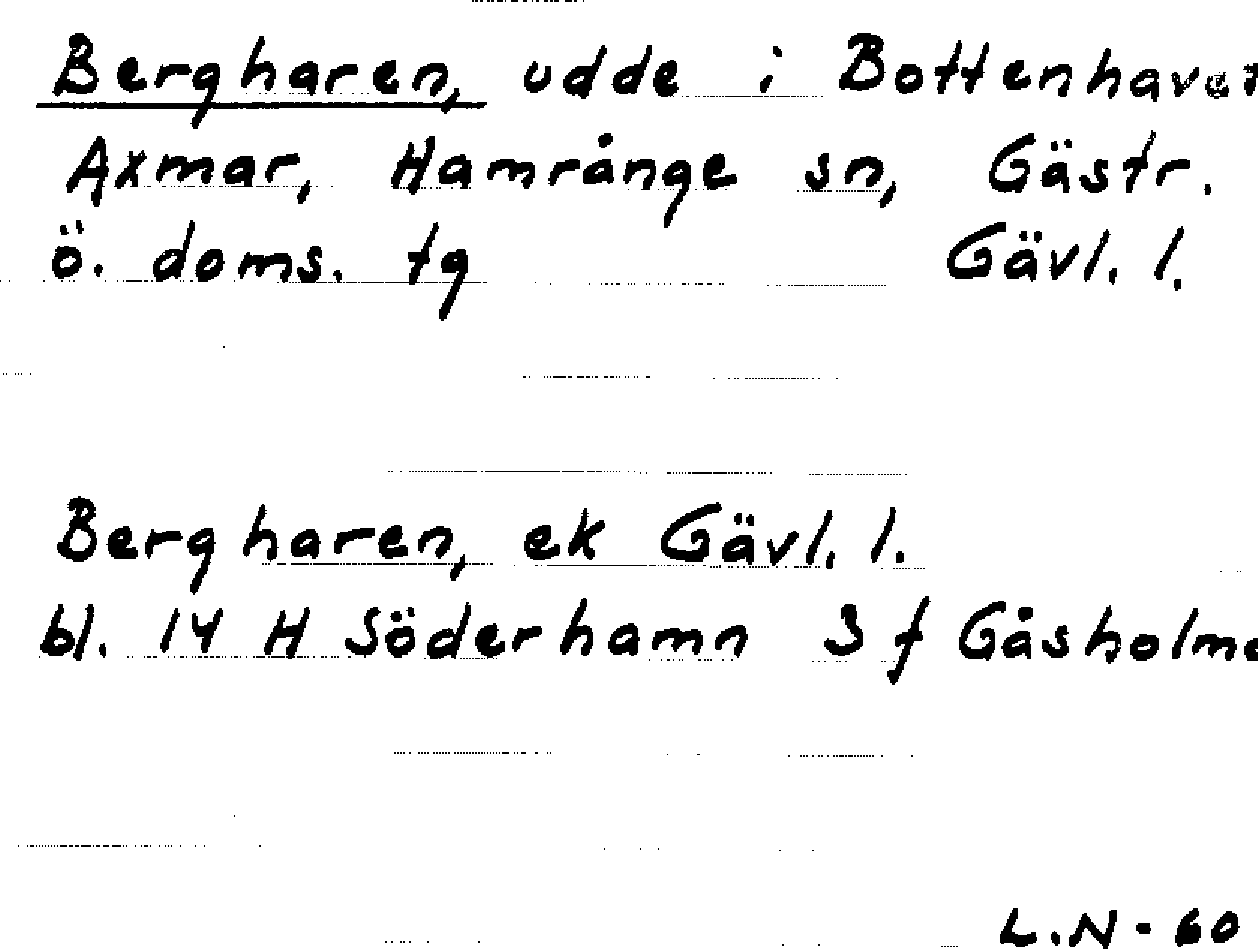 Bergharen, udde i Bottenhavet
Axmar, Hamrånge sn, Gästr.
ö. doms. tg Gävl. l.
Bergharen, ek Gävl. l.
bl. 14 H Söderhamn 3 f
L.N - 60